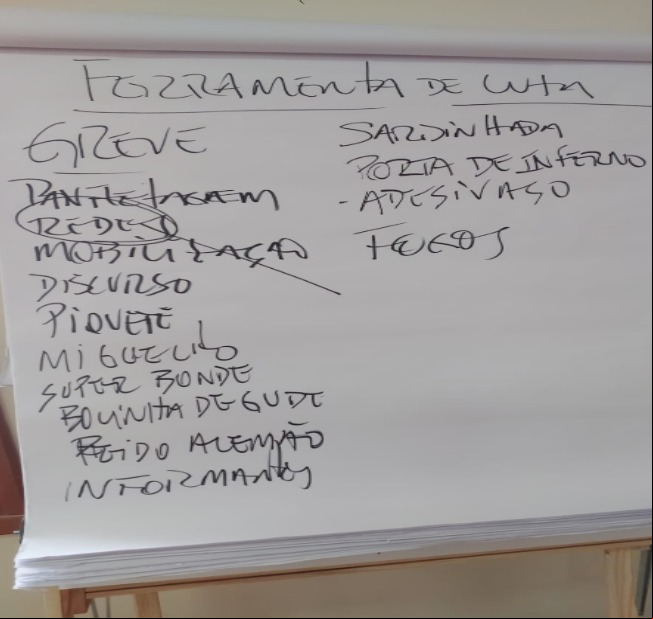 FERRAMENTA DE LUTA
GREVE
PANFLETAGEM
REDES
MOBILIZAÇÃO
DISCURSO
PIQUETE
MIGUELITO
SUPER BONDE
BOLINHA DE GUDE
PEIDO ALEMÃO
INFORMANTES
SARDINHADA
PORTA DE INFERNO
- ADESIVASO